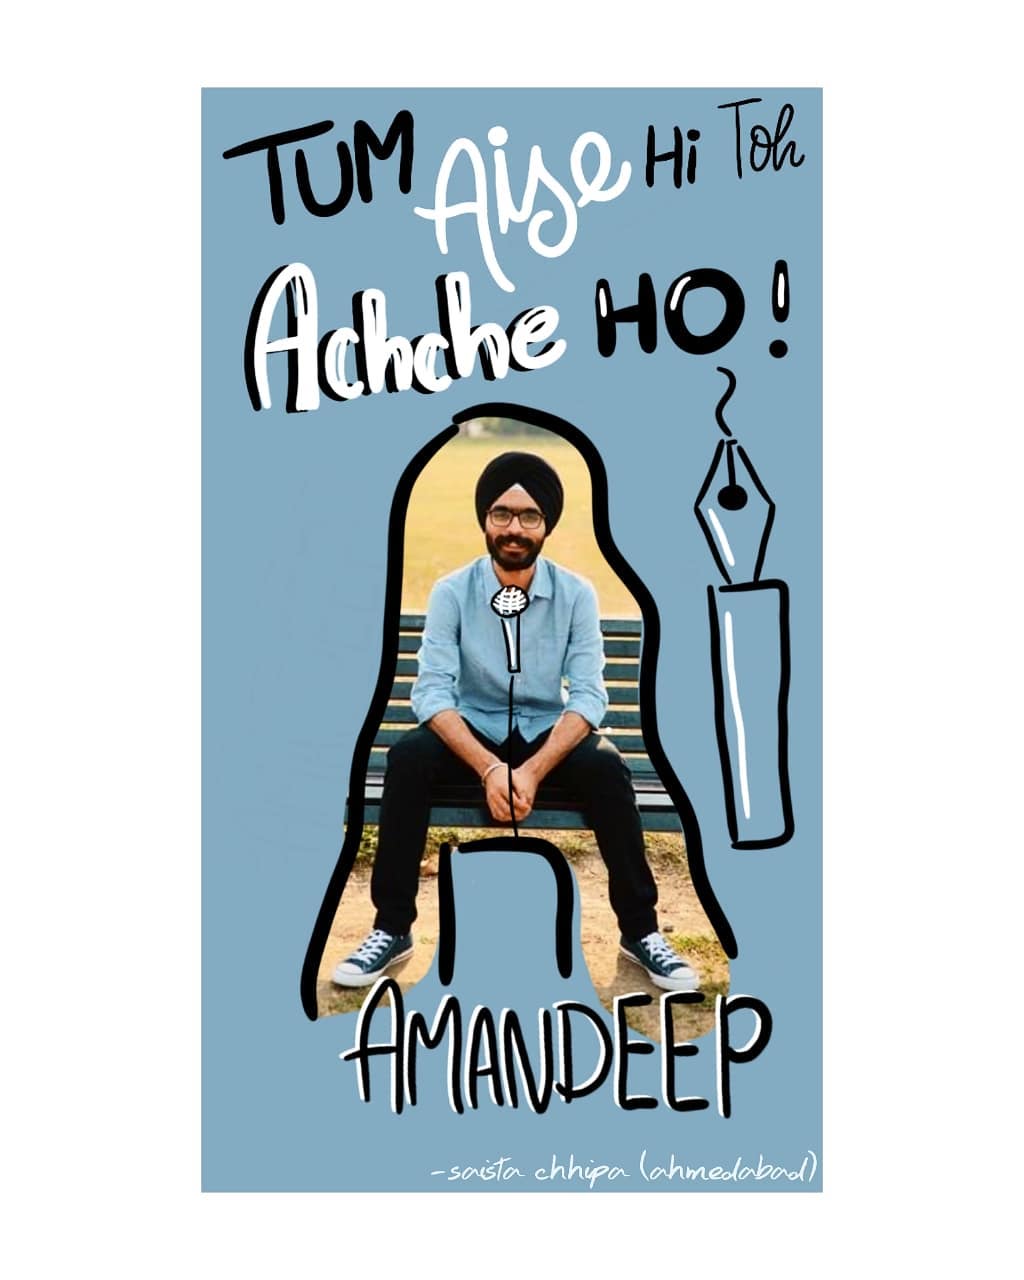 TUM Aise Hi Toh
Achche HO!
AMANDEEP
-saista chhipa (ahmedabad)